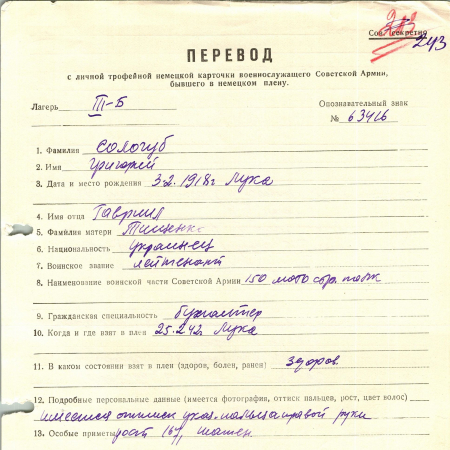 243
Сов. секретно
243
ПЕРЕВОД
с личной трофейной немецкой карточки военнослужащего Советской Армии,
бывшего в немецком плену.
Лагерь III-Б Опознавательный знак
№ 63416
1. Фамилия Сологуб
2. Имя Григорий
3. Дата и место рождения 3.2.1918г Лука
4. Имя отца Гавриил
5. Фамилия матери Тищенко
6. Национальность украинец
7. Воинское звание лейтенант
8. Наименование воинской части Советской Армии 150 мото стр. полк
9. Гражданская специальность бухгалтер
10. Когда и где взят в плен 25.2.42. Лука
11. В каком состоянии взят в плен (здоров, болен, ранен) здоров
12. Подробные персональные данные (имеется фотография, оттиск пальцев, рост, цвет волос)
имеется оттиск указ. пальца правой руки
13. Особые приметы рост 167, шатен.